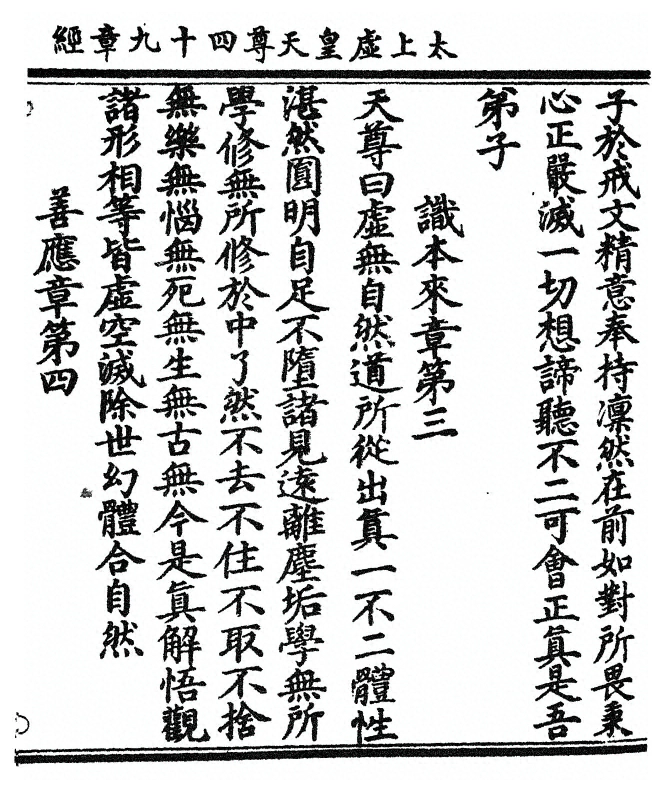 太上虛皇天尊四十九章經
子於戒文精意奉持凛然在前如對所畏秉
心正嚴滅一切想諦聽不二可會正眞是吾
弟子
識本來章第三
天尊曰虛無自然道所從出眞一不二體性
湛然圓明自足不墮諸見遠離塵垢學無所
學修無所修於中了然不去不住不取不捨
無樂無惱無死無生無古無今是眞解悟觀
諸形相等皆虛空滅除世幻體合自然
善應章第四